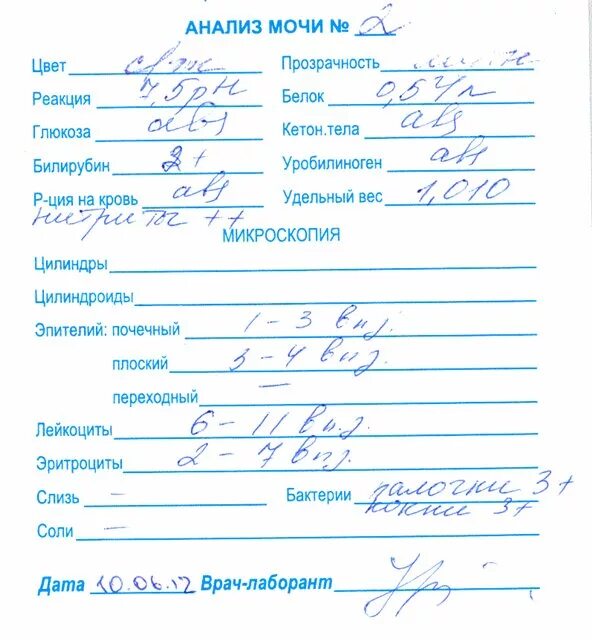 АНАЛИЗ МОЧИ № 2
Цвет св.ж Прозрачность
Реакция 7,5 pH Белок 0,5 г/л
Глюкоза abs Кетон.тела abs
Билирубин 2+ Уробилиноген abs
Р-ция на кровь abs Удельный вес 1,010
нитриты ++
МИКРОСКОПИЯ
Цилиндры
Цилиндроиды
Эпителий: почечный 1 - 3 в п.з.
плоский 3 - 4 в п.з.
переходный —
Лейкоциты 6 - 11 в п.з.
Эритроциты 2 - 7 в п.з.
Слизь — Бактерии палочки 3+
кокки 3+
Соли —
Дата 10.06.12 Врач-лаборант